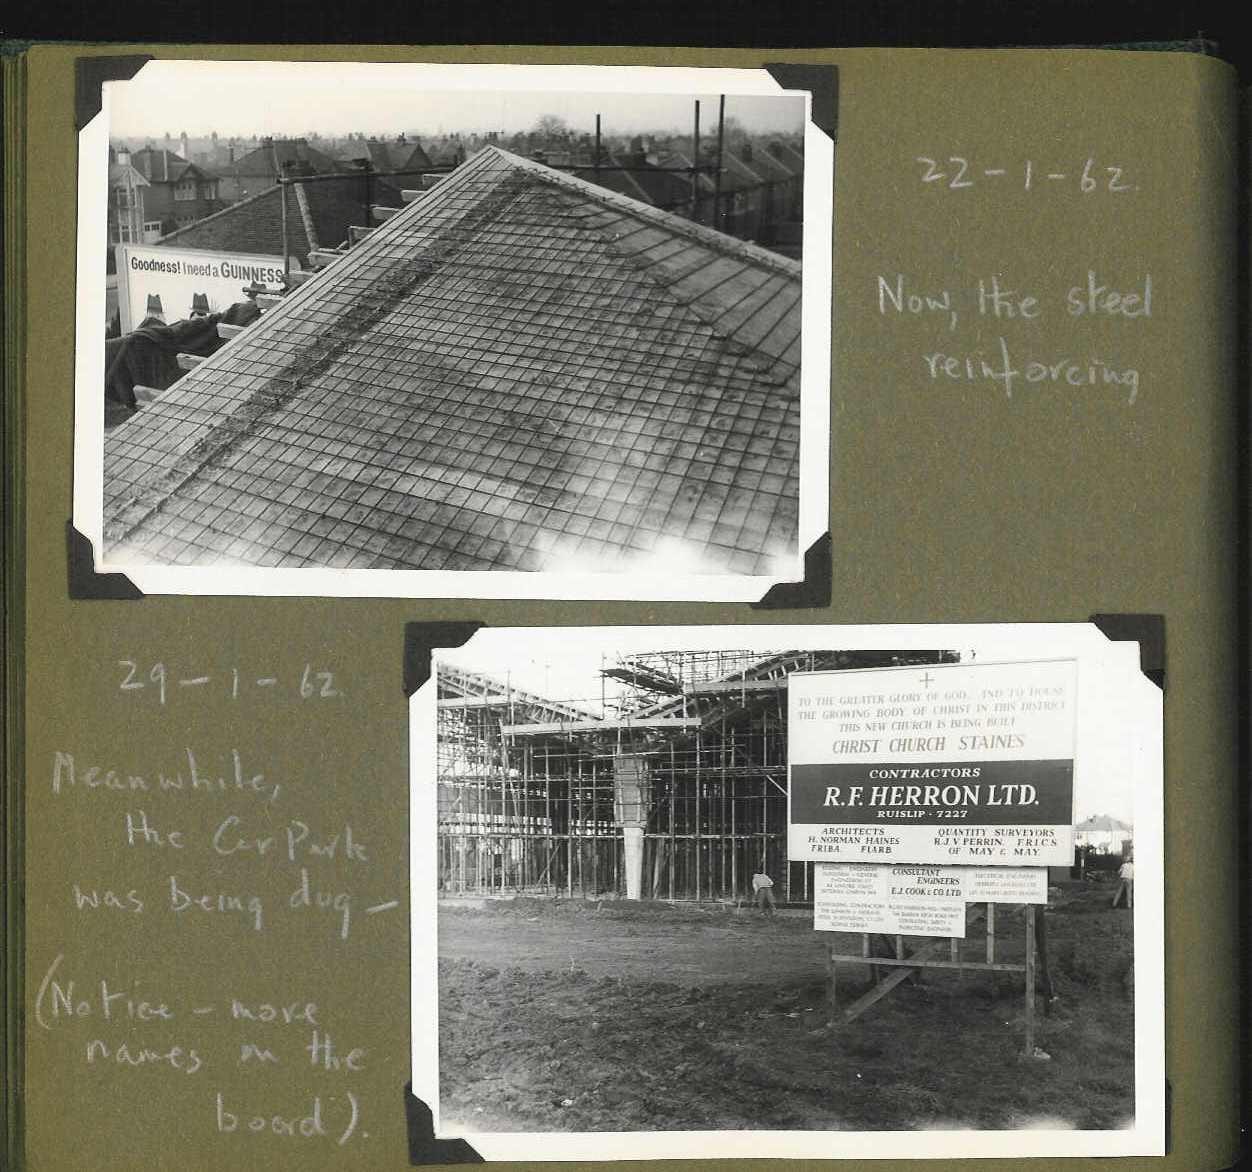 22-1-62.
Now, the steel
reinforcing
Goodness! I need a GUINNESS
29-1-62.
Meanwhile,
the Car Park
was being dug -
(Notice - more
names on the
board).
TO THE GREATER GLORY OF GOD, AND TO HOUSE
THE GROWING BODY OF CHRIST IN THIS DISTRICT
THIS NEW CHURCH IS BEING BUILT
CHRIST CHURCH STAINES
CONTRACTORS
R.F. HERRON LTD.
RUISLIP · 7227
ARCHITECTS
H. NORMAN HAINES
F.R.I.B.A. F.I.A.R.B.
QUANTITY SURVEYORS
R.J.V. PERRIN. F.R.I.C.S
OF MAY & MAY.
CONSULTANT
ENGINEERS
E.J. COOK & CO. LTD